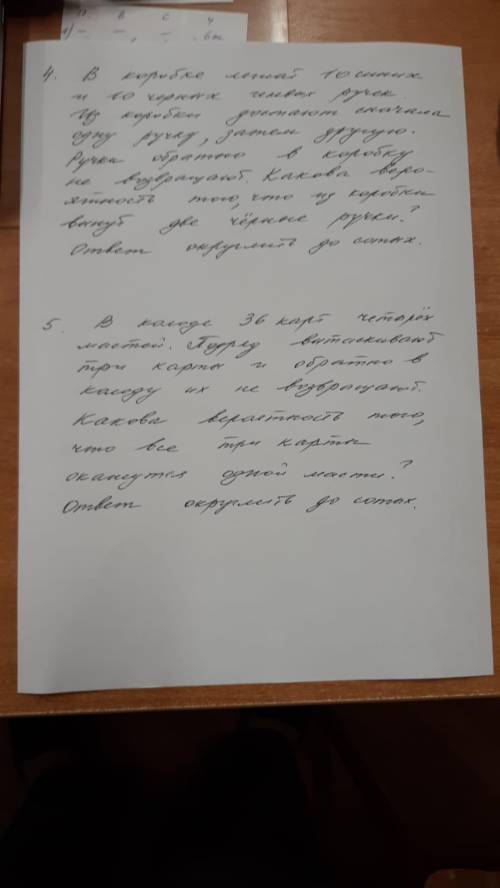 4. В коробке лежат 10 синих
и 10 черных гелевых ручек.
Из коробки достают сначала
одну ручку, затем другую.
Ручки обратно в коробку
не возвращают. Какова веро-
ятность того, что из коробки
вынут две чёрные ручки?
Ответ округлить до сотых.
5. В колоде 36 карт четырёх
мастей. Подряд вытаскивают
три карты и обратно в
колоду их не возвращают.
Какова вероятность того,
что все три карты
окажутся одной масти?
Ответ округлить до сотых.